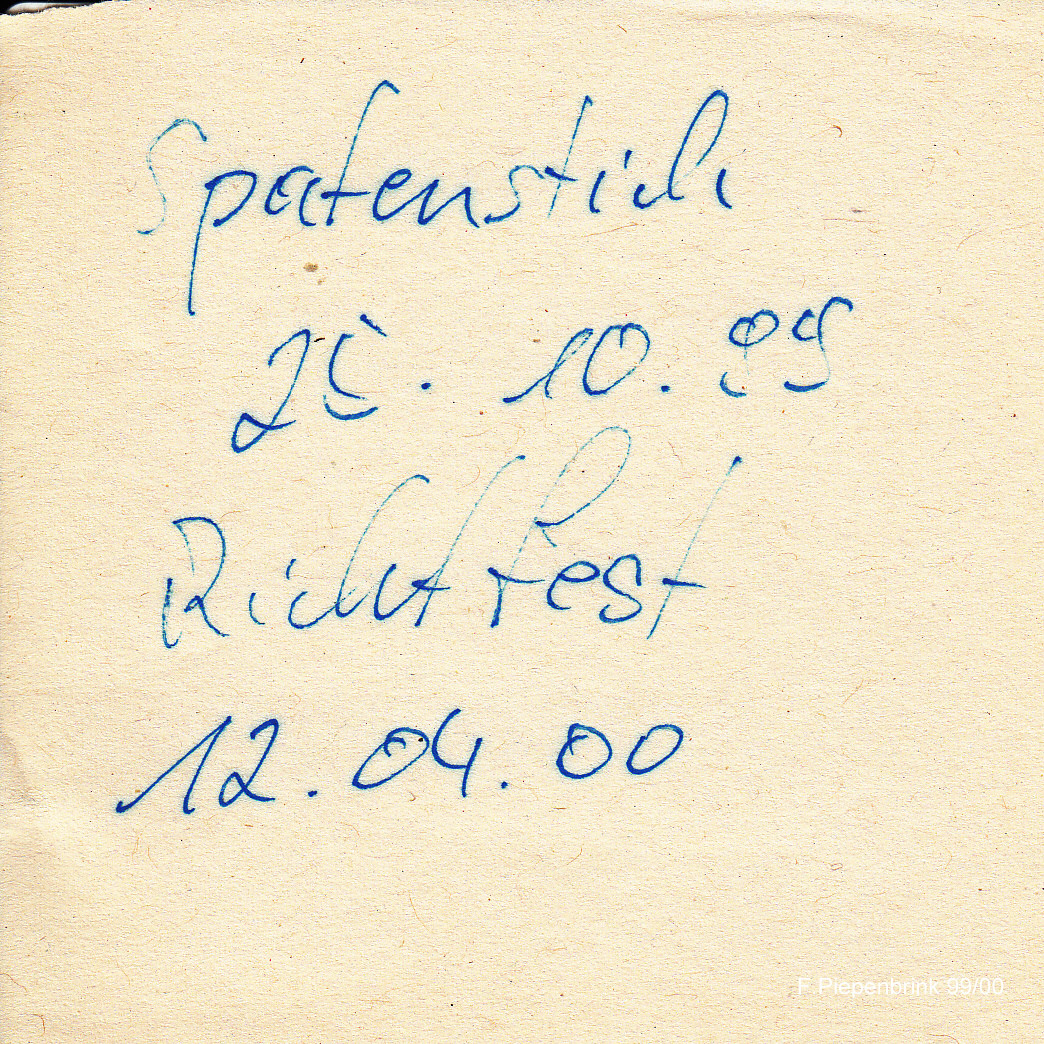 Spatenstich
25. 10. 99
Richtfest
12.04.00
F Piepenbrink 99/00